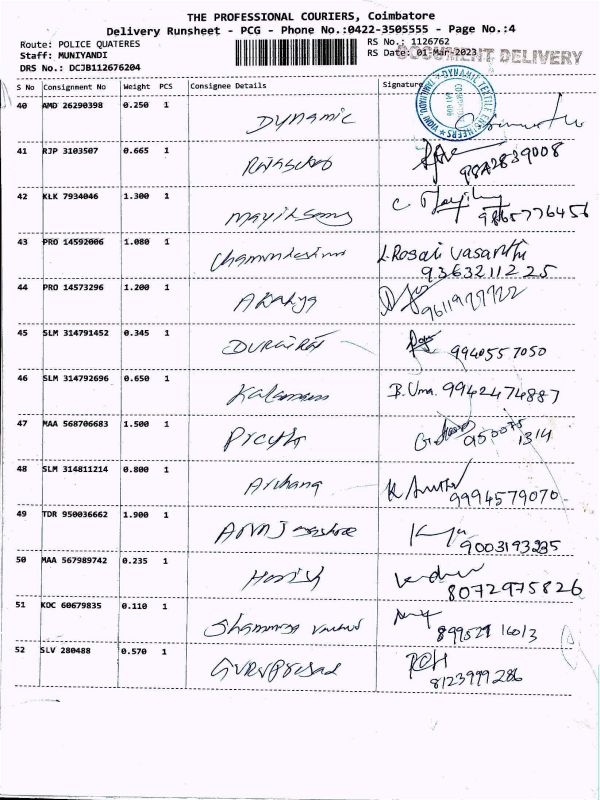 THE PROFESSIONAL COURIERS, Coimbatore
Delivery Runsheet - PCG - Phone No.:0422-3505555 - Page No.:4
Route: POLICE QUATERES
RS No.: 1126762
Staff: MUNIYANDI
RS Date: 01-Mar-2023
DOCUMENT DELIVERY
DRS No.: DCJB112676204
S No Consignment No Weight PCS Consignee Details Signature
DYNAMIC TEXTILE ENGINEERS
40 AMD 26290398 0.250 1 Dynamic
41 RJP 3103507 0.665 1 9842839008
42 KLK 7934046 1.300 1 Mayilsamy 9865776456
43 PRO 14592006 1.080 1 J.Rosari Vasanthi
9363211225
44 PRO 14573296 1.200 1
45 SLM 314791452 0.345 1 DURAIRAJ 9940557050
46 SLM 314792696 0.650 1 B.Uma. 9942474887
47 MAA 568706683 1.500 1 950075
1314
48 SLM 314811214 0.800 1 Archana 9994579070
49 TDR 950036662 1.900 1 9003193235
50 MAA 567989742 0.235 1 Harish 8072975826
51 KOC 60679835 0.110 1
52 SLV 280488 0.570 1 Guruprasad
8123999286